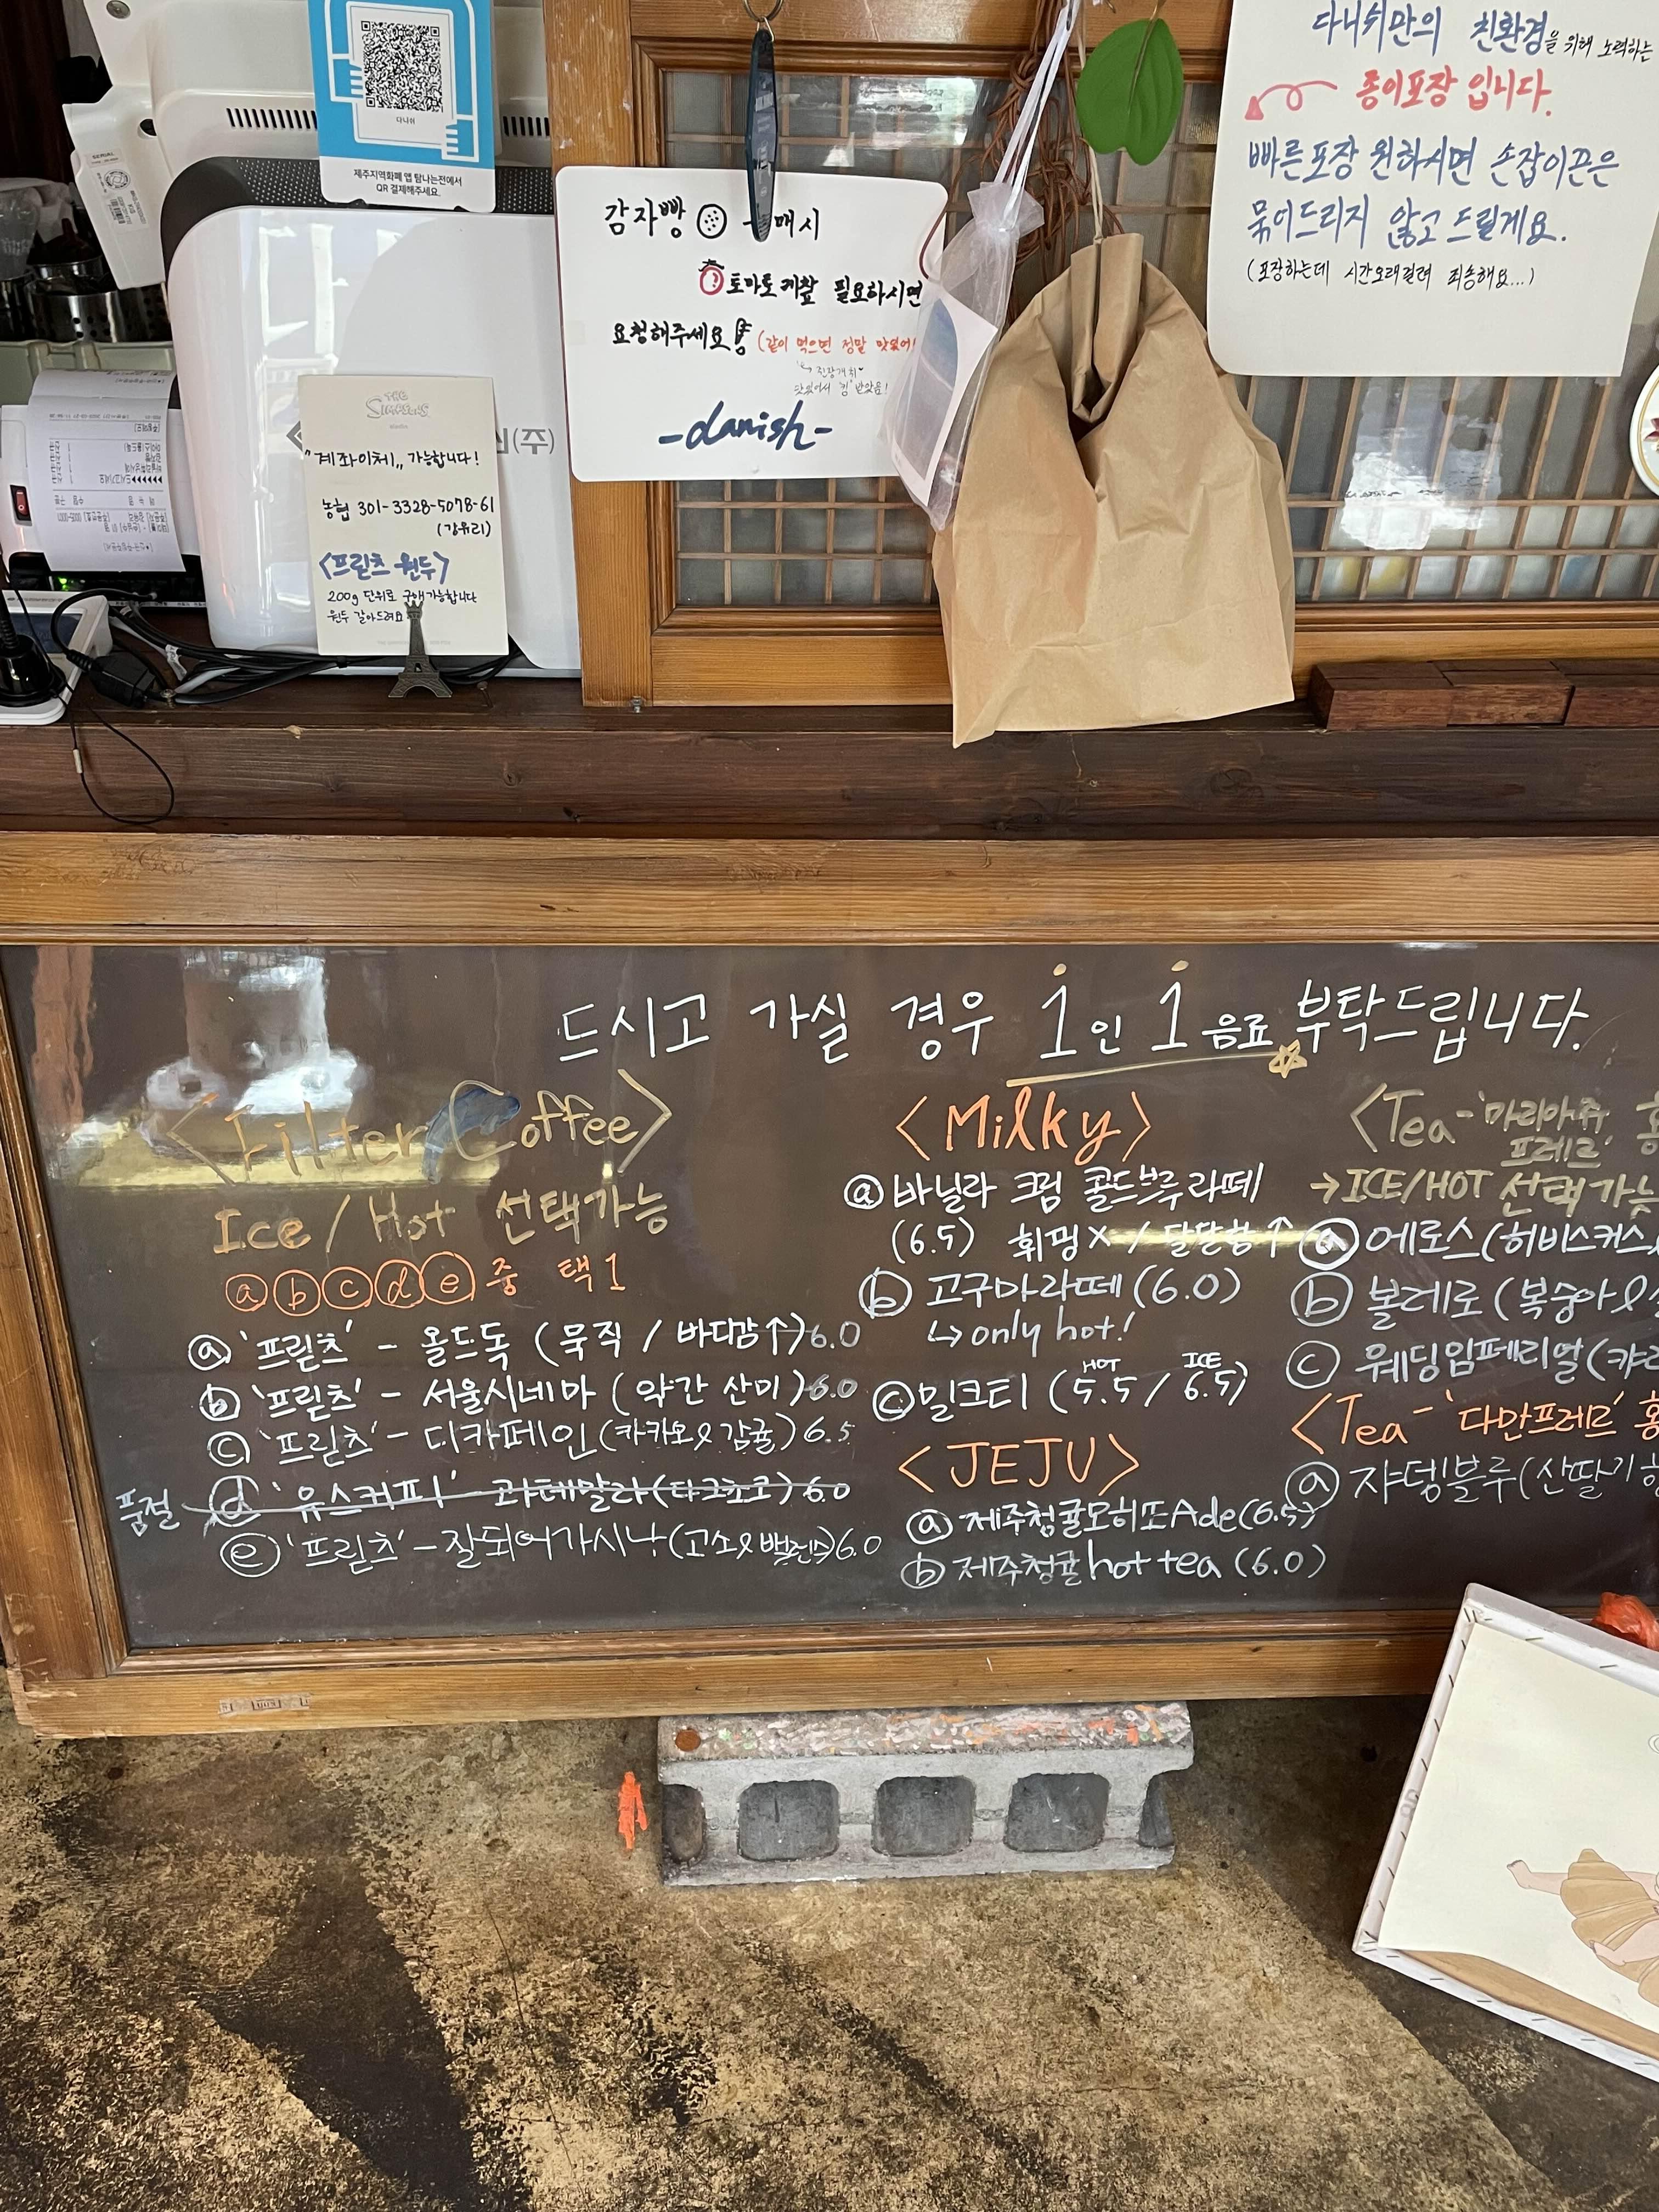 다니쉬
제주지역화폐 앱 탐나는전에서
QR 결제해주세요.
감자빵 매시
토마토 케찹 필요하시면
요청해주세요
(같이 먹으면 정말 맛있어!
맛있어서 "킹" 받았음!
-danish-
THE
SIMPSONS
"계좌이체" 가능합니다!
농협 301-3328-5078-61
(강유리)
<프릳츠 원두>
200g 단위로 구매가능합니다
원두 갈아드려요
(주)
다니쉬만의 친환경을 위해 노력하는
종이포장 입니다.
빠른포장 원하시면 손잡이끈은
묶어드리지 않고 드릴게요.
(포장하는데 시간오래걸려 죄송해요...)
드시고 가실 경우 1인 1음료 부탁드립니다.
<Filter Coffee>
Ice / Hot 선택가능
ⓐ ⓑ ⓒ ⓓ ⓔ 중 택1
ⓐ '프릳츠' - 올드독 (묵직 / 바디감↑) 6.0
ⓑ '프릳츠' - 서울시네마 (약간 산미) 6.0
ⓒ '프릳츠' - 디카페인 (카카오& 감귤) 6.5
품절 ⓓ '유스커피' - 과테말라 (다크초코) 6.0
ⓔ '프릳츠' - 잘되어가시나 (고소& 밸런스) 6.0
<Milky>
ⓐ 바닐라 크림 콜드브루 라떼
(6.5) 휘핑X / 달달함↑
ⓑ 고구마라떼 (6.0)
↳ only hot!
HOT ICE
ⓒ 밀크티 (5.5 / 6.5)
<JEJU>
ⓐ 제주청귤모히또 Ade (6.5)
ⓑ 제주청귤 hot tea (6.0)
<Tea - '마리아쥬
프레르'
→ ICE/HOT 선택가능
ⓐ 에로스 (히비스커스,
ⓑ 볼레로 (복숭아&
ⓒ 웨딩임페리얼 (캬라
<Tea - '다만프레르' 홍
ⓐ 쟈뎅블루 (산딸기